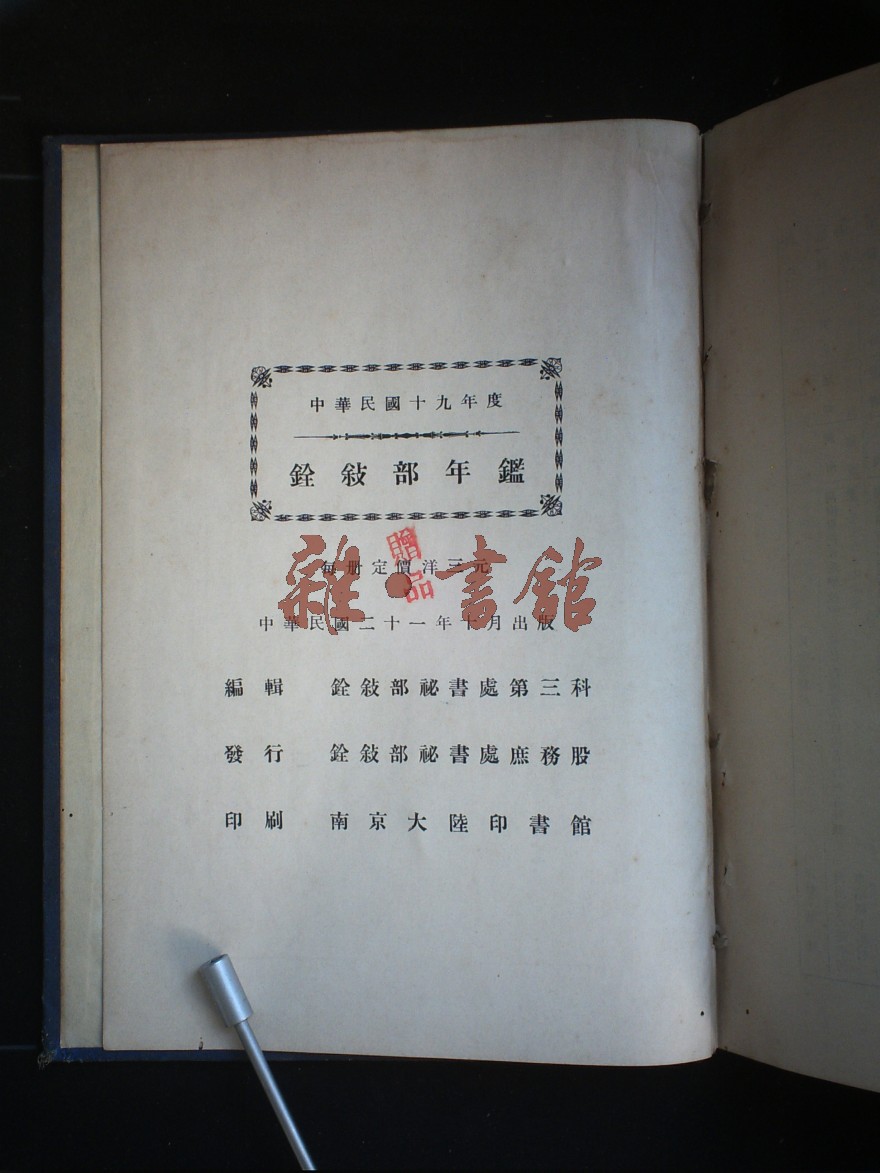 中華民國十九年度
銓敍部年鑑
每册定價洋三元
贈品
雜·書館
中華民國二十一年十月出版
編輯 銓敍部祕書處第三科
發行 銓敍部祕書處庶務股
印刷 南京大陸印書館